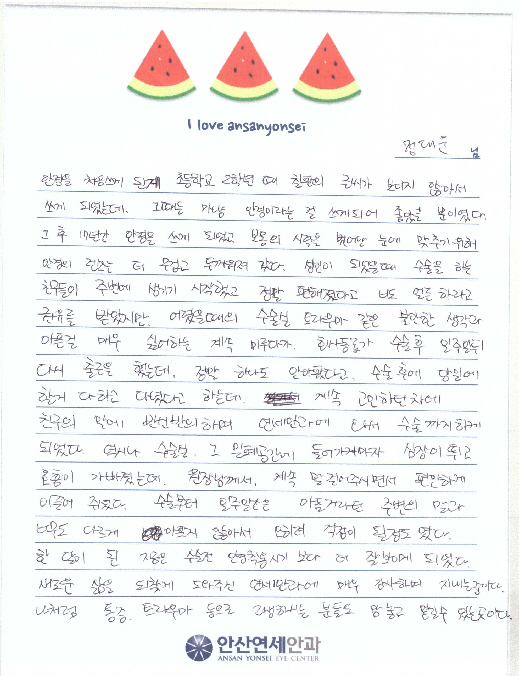 I love ansanyonsei
정대훈 님
안경을 착용하게 된게 초등학교 2학년 때 칠판의 글씨가 보이지 않아서
쓰게 되었는데. 그때는 마냥 안경이라는 걸 쓰게되어 좋았을 뿐이였다.
그 후 17년간 안경을 쓰게 되었고 보통의 시력을 벗어난 눈에 맞추기위해
안경의 렌즈는 더 무겁고 두꺼워져 갔다. 성인이 되었을때 수술을 하는
친구들이 주변에 생기기 시작했고 정말 편해졌다고 너도 얼른 하라고
권유를 받았지만. 어렸을때의 수술실 트라우마 같은 불안한 생각과
아픈걸 매우 싫어하는 계속 미루다가. 회사동료가 수술후 일주일뒤
다시 출근을 했는데. 정말 하나도 안아팠다고. 수술 후에 당일에
할거 다하고 다녔다고 하는데. 계속 고민하던 차에
친구의 말에 반신반의하며 연세안과에 와서 수술까지 하게
되었다. 역시나 수술실. 그 밀폐공간에 들어가자마자 심장이 뛰고
호흡이 가빠졌는데. 원장님께서. 계속 말 걸어주시면서 편안하게
이끌어 주셨다. 수술부터 일주일간은 아플거라던 주변의 말과
너무도 다르게 아프지 않아서 오히려 걱정이 될정도 였다.
한 달이 된 지금은 수술전 안경착용시기 보다 더 잘보이게 되었다.
새로운 삶을 되찾게 도와주신 연세안과에 매우 감사하며 지내는중이다.
나처럼 통증. 트라우마 등으로 고생하는 분들도 맘 놓고 맡길수 있는곳이다.
안산연세안과
ANSAN YONSEI EYE CENTER